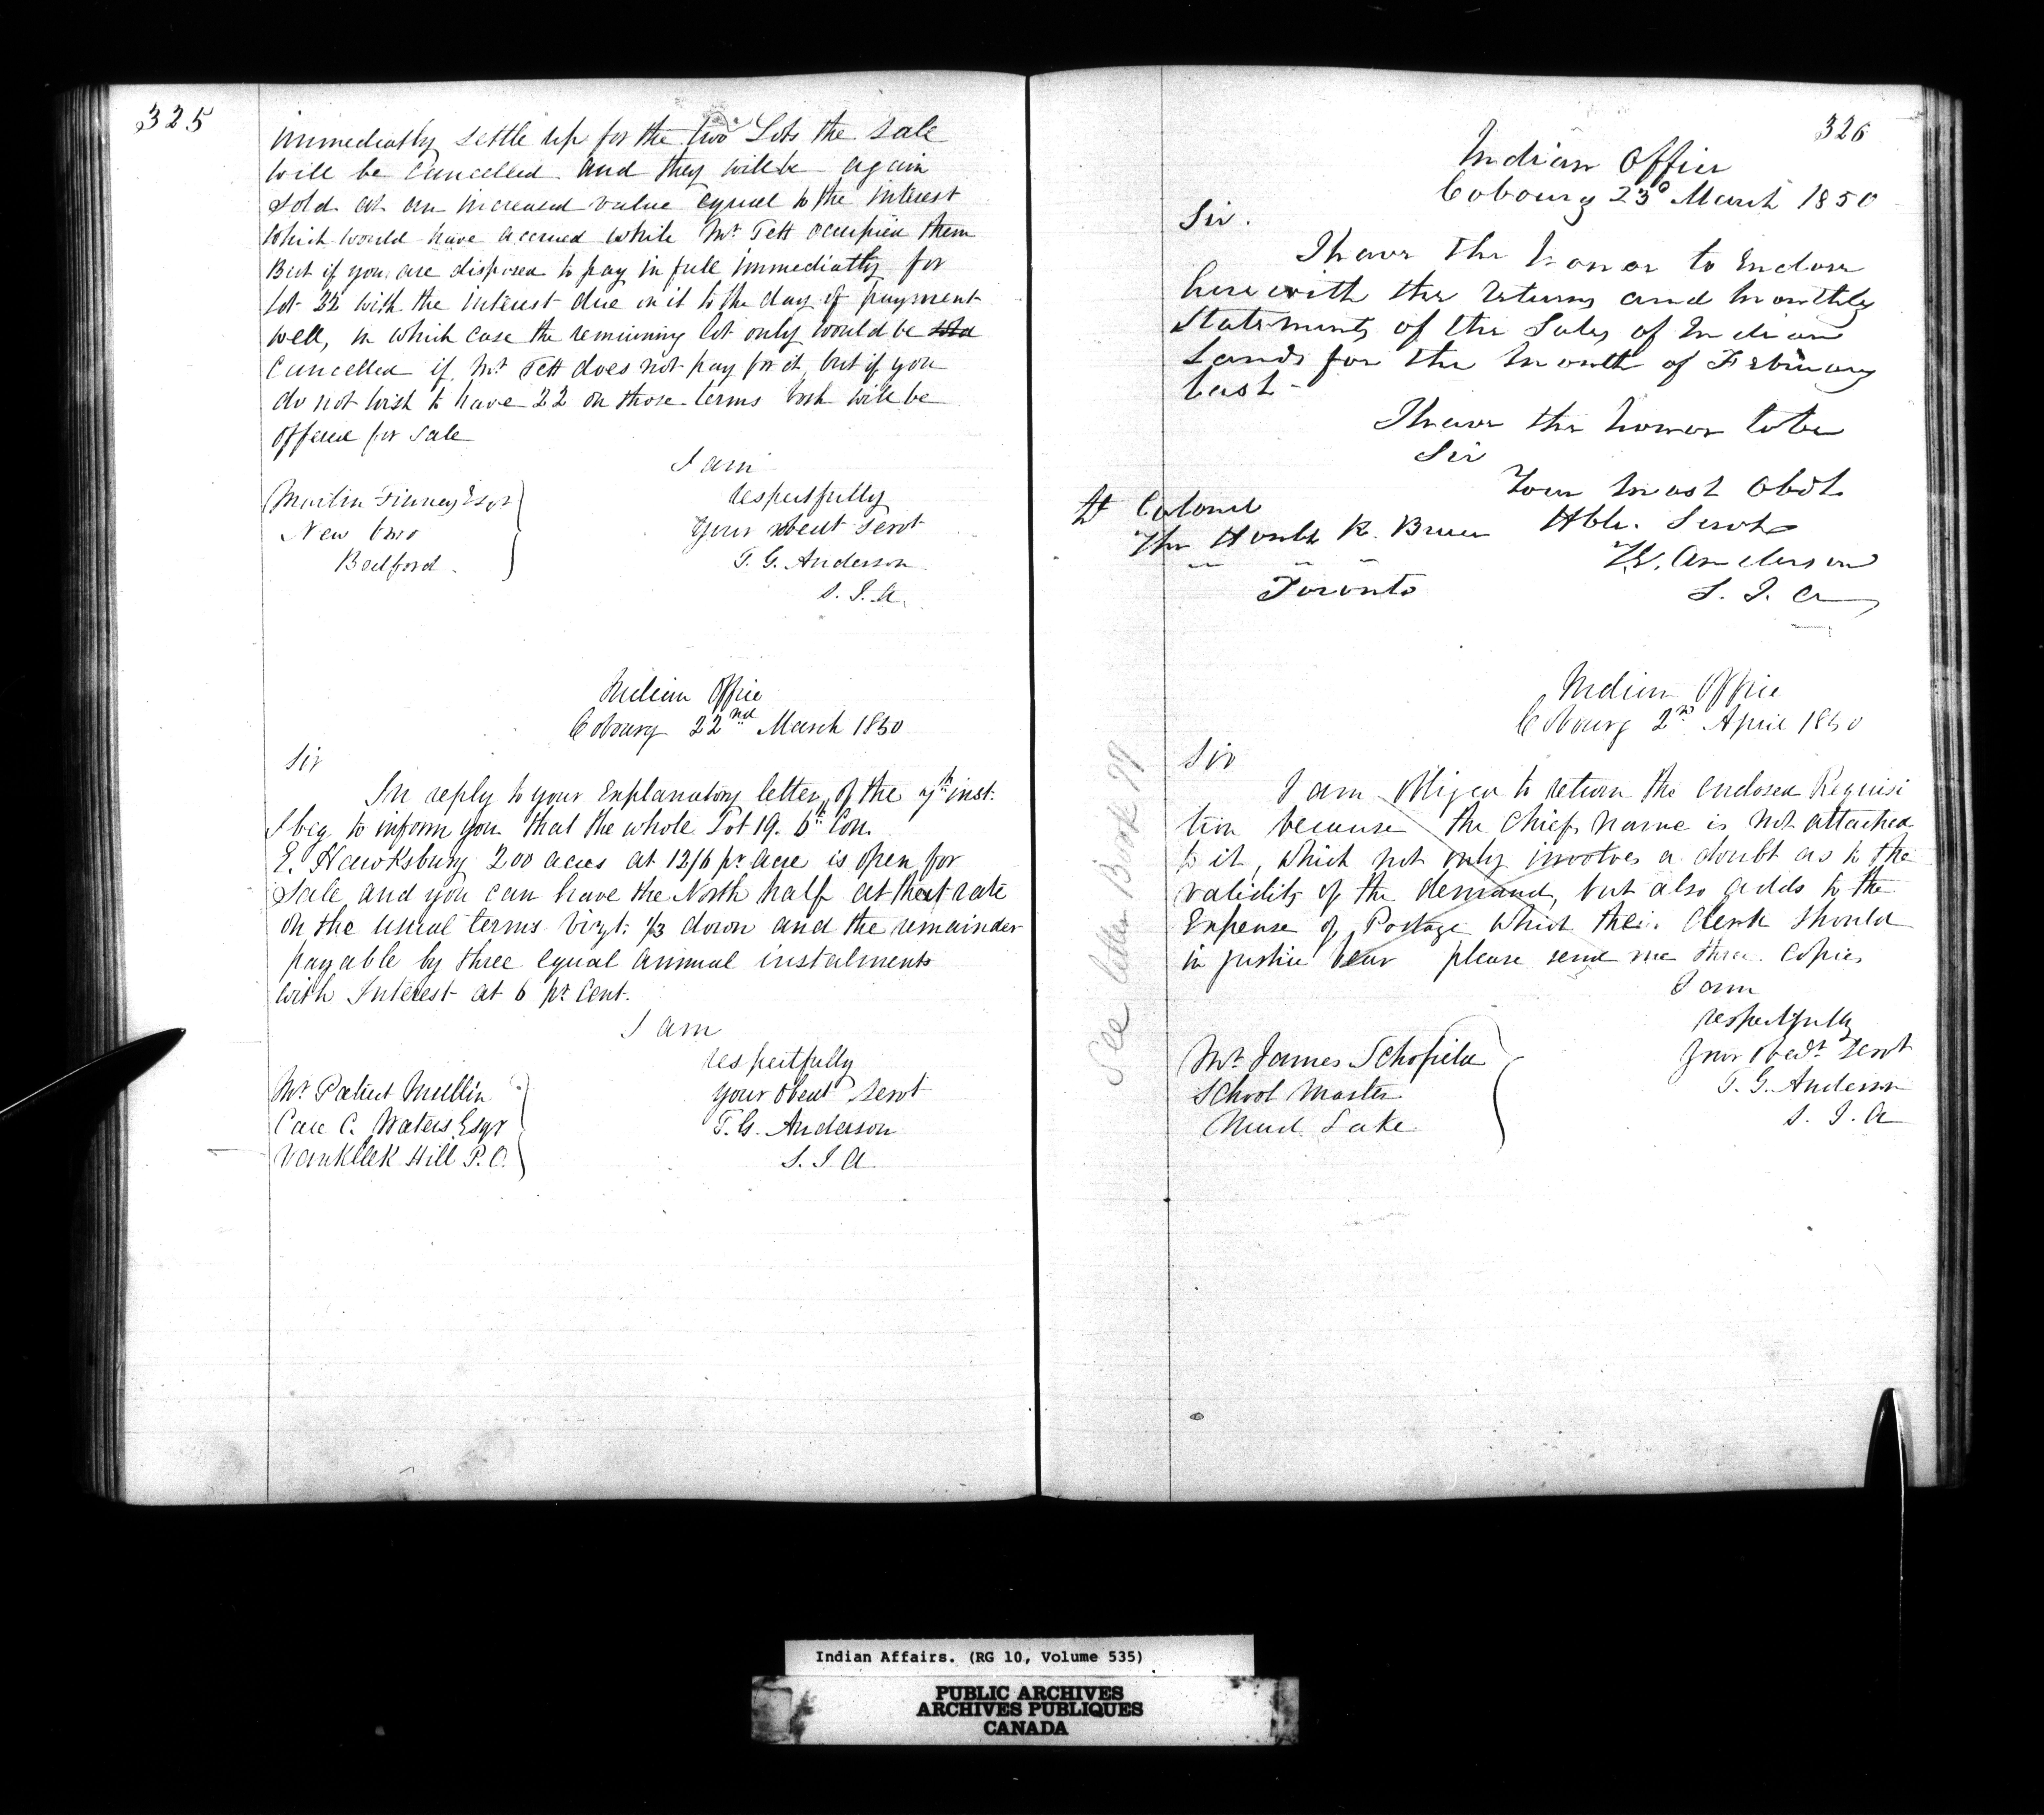 325
immediatly settle up for the two Lots the sale
will be Cancelled and they will be again
sold at an increased value equal to the interest
which would have accrued while Mr Tett occupied them
But if you are disposed to pay in full immediatly for
Lot 22 with the interest due on it to the day of payment
well, in which case the remaining lot only would be sold
Cancelled if Mr Tett does not pay for it, but if you
do not wish to have 22 on those terms both will be
offered for sale
I am
respectfully
Your obedt Servt
T. G. Anderson
S. I. A.
Martin Finney Esqr
New
Bedford
Indian Office
Cobourg 22nd March 1850
Sir
In reply to your Explanatory letter of the 7th inst.
I beg to inform you that the whole Lot 19. 6th Con.
E. Hawksbury 200 acres at 12/6 pr acre is open for
Sale and you can have the North half at that rate
on the usual terms vizt. 1/3 down and the remainder
payable by three equal annual instalments
with Interest at 6 pr Cent.
I am
respectfully
your obedt servt
T. G. Anderson
S. I. A
Mr Patrick Mullin
Care C. Waters Esqr
Vankleek Hill P.O.
326
Indian Office
Cobourg 23d March 1850
Sir.
I have the honor to Enclose
herewith the returns and monthly
Statements of the Sales of Indian
Lands for the Month of February
last -
I have the honor to be
Sir
Your most Obdt
Hble. Servt
T.G. Anderson
S. I. A
Lt Colonel
The Honble R. Bruce
Toronto
Indian Office
Cobourg 2nd April 1850
Sir
I am obliged to return the enclosed Requisi
tion because the Chiefs name is not attached
to it, which not only involves a doubt as to the
validity of the demand, but also adds to the
Expense of Postage which their Clerk should
in justice bear please send me three Copies
I am
respectfully
Your Obedt Servt
T. G. Anderson
S. I. A
Mr James Schofield
School Master
Mud Lake
See letter Book
Indian Affairs. (RG 10, Volume 535)
PUBLIC ARCHIVES
ARCHIVES PUBLIQUES
CANADA